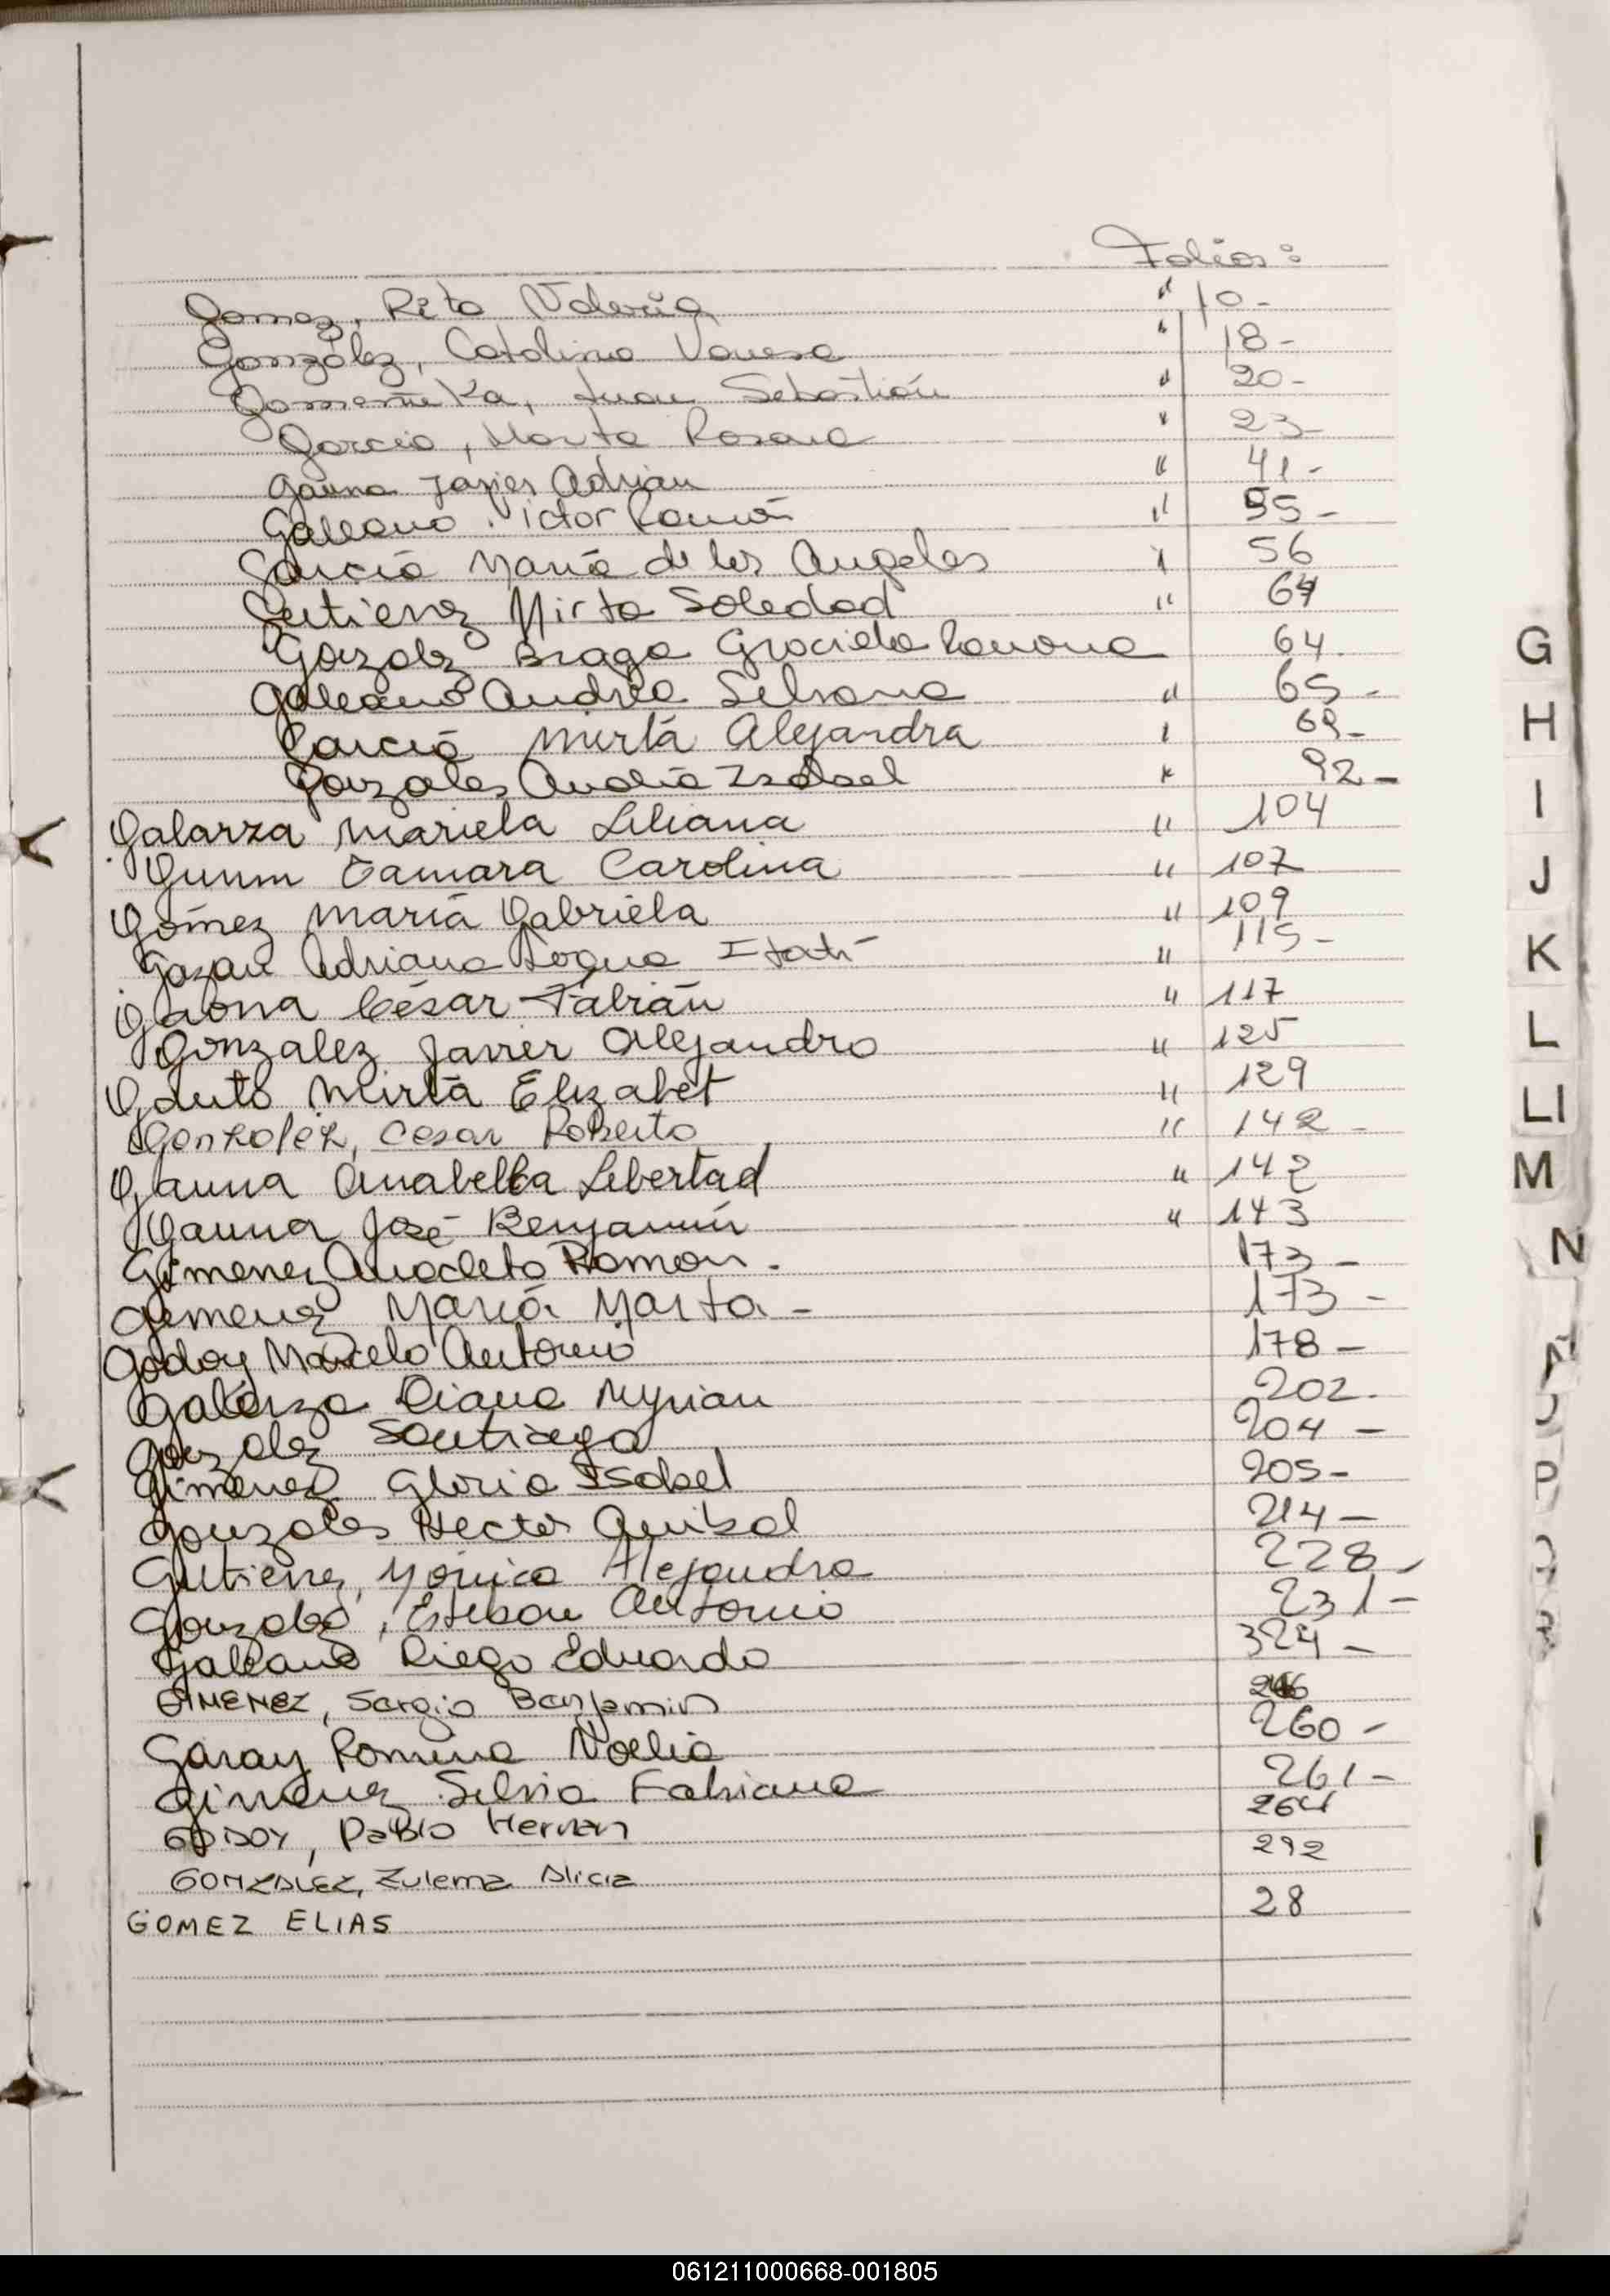 Folios:
Gomez, Rita Valeria " 10-
González, Catalina Vanesa " 18-
Juan Sebastián " 20-
Garcia, Marta Rosana " 23-
Gauna Javier Adrian " 41-
Galeano Victor Ramón " 55-
Garcia María de los Angeles " 56
Gutierrez Mirta Soledad "
Gonzalez Braga Graciela Ramona 64.
Galeano Andrea Silvana " 65-
Garcia Mirta Alejandra " 69-
Gonzales Analia Isabel " 92-
Galarza Mariela Liliana " 104
Tamara Carolina " 107
Gómez María Gabriela " 109
Adriana Itatí " 115-
Gaona César Fabián " 117
Gonzalez Javier Alejandro " 125
Mirta Elizabet " 129
Gonzalez, Cesar Roberto " 142-
Gauna Anabella Libertad " 142
Gauna José Benjamín " 143
Gimenez Anacleto Ramon. 173-
Gimenez María Marta- 173-
Godoy Marcelo Antonio 178-
Galarza Diana Myrian 202.
Gonzalez Santiago 204-
Gimenez Gloria Isabel 205-
Gonzales Hector Anibal 214-
Gutierrez, Mónica Alejandra 228-
Gonzalez, Esteban Antonio 231-
Galeano Diego Eduardo 324-
GIMENEZ, Sergio Benjamin
Garay Romina Noelia 260-
Gimenez Silvia Fabiana 261-
GODOY, Pablo Hernan 264
GONZALEZ, Zulema Alicia 292
GOMEZ ELIAS 28
G
H
I
J
K
L
Ll
M
N
P
061211000668-001805